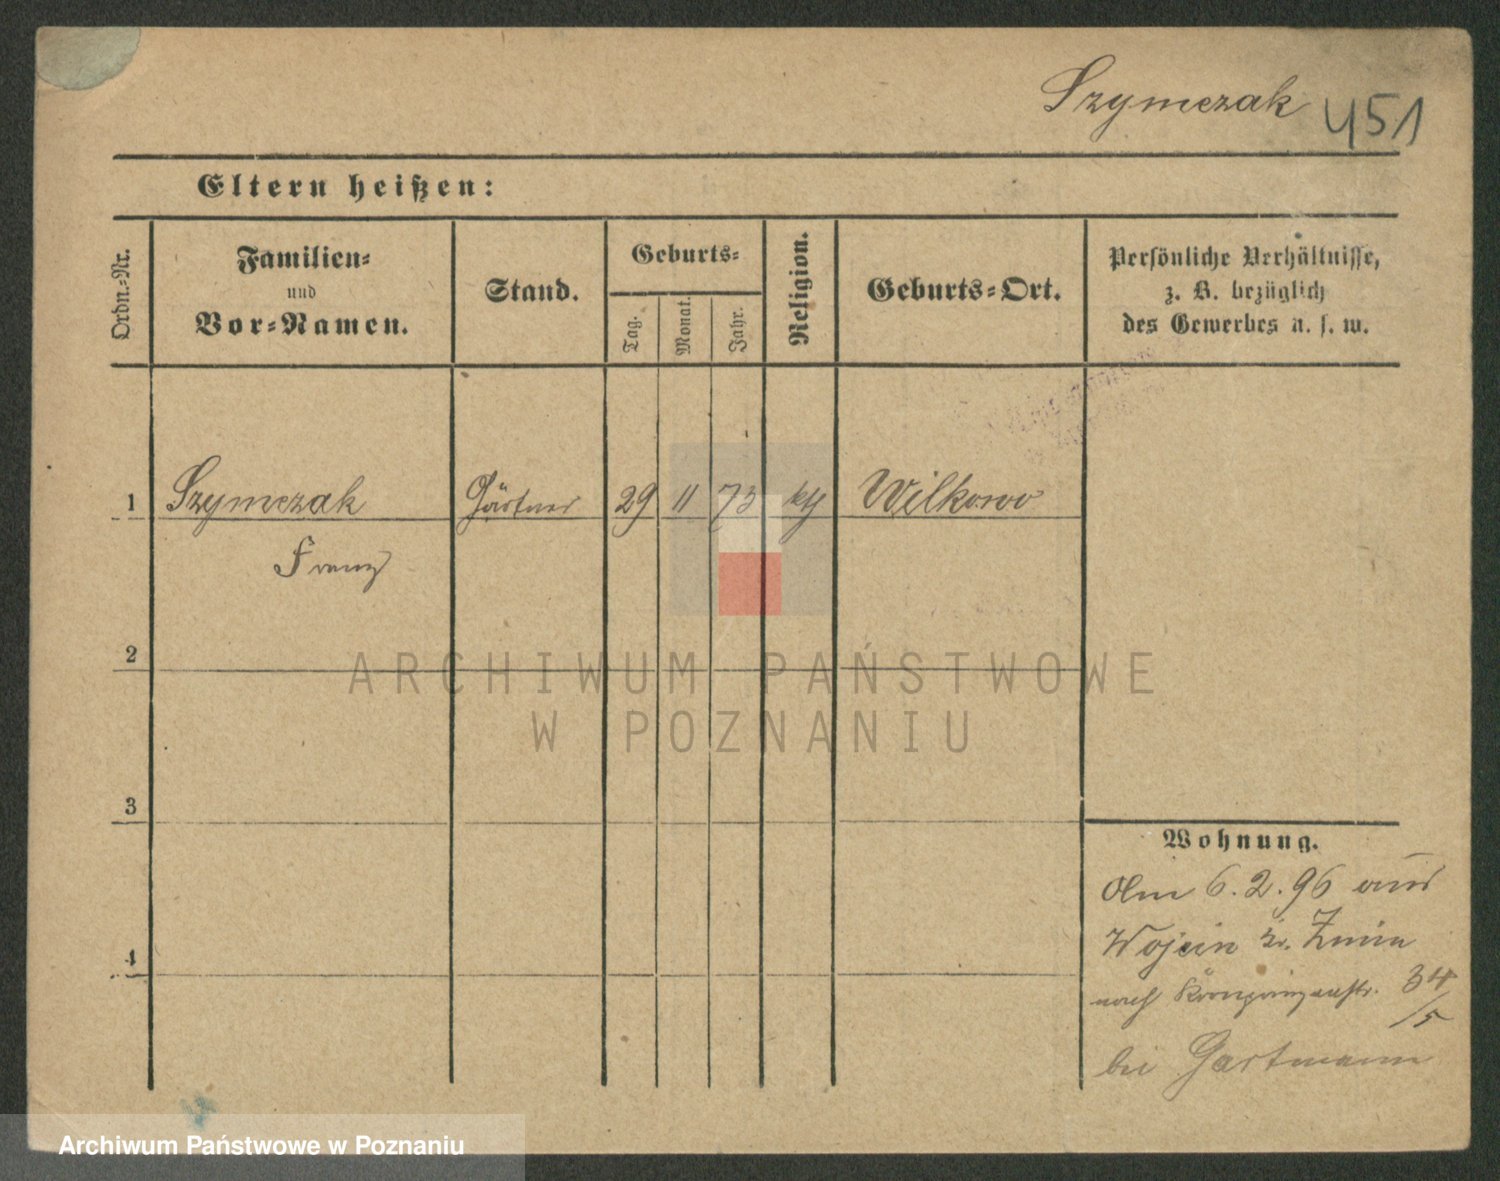 Szymczak 451
Eltern heißen:
Ordn.-Nr.
Familien-
und
Vor-Namen.
Stand.
Geburts-
Tag.
Monat.
Jahr.
Religion.
Geburts-Ort.
Persönliche Verhältnisse,
z. B. bezüglich
des Gewerbes u. s. w.
1 Szymczak Gärtner 29 11 73 kth Wilkowo
Franz
2
3
4
Wohnung.
Am 6.2.96 aus
Wojcin Kr. Znin
nach Kronprinzenstr. 34
/5
bei Gartmann
ARCHIWUM PAŃSTWOWE
W POZNANIU
Archiwum Państwowe w Poznaniu